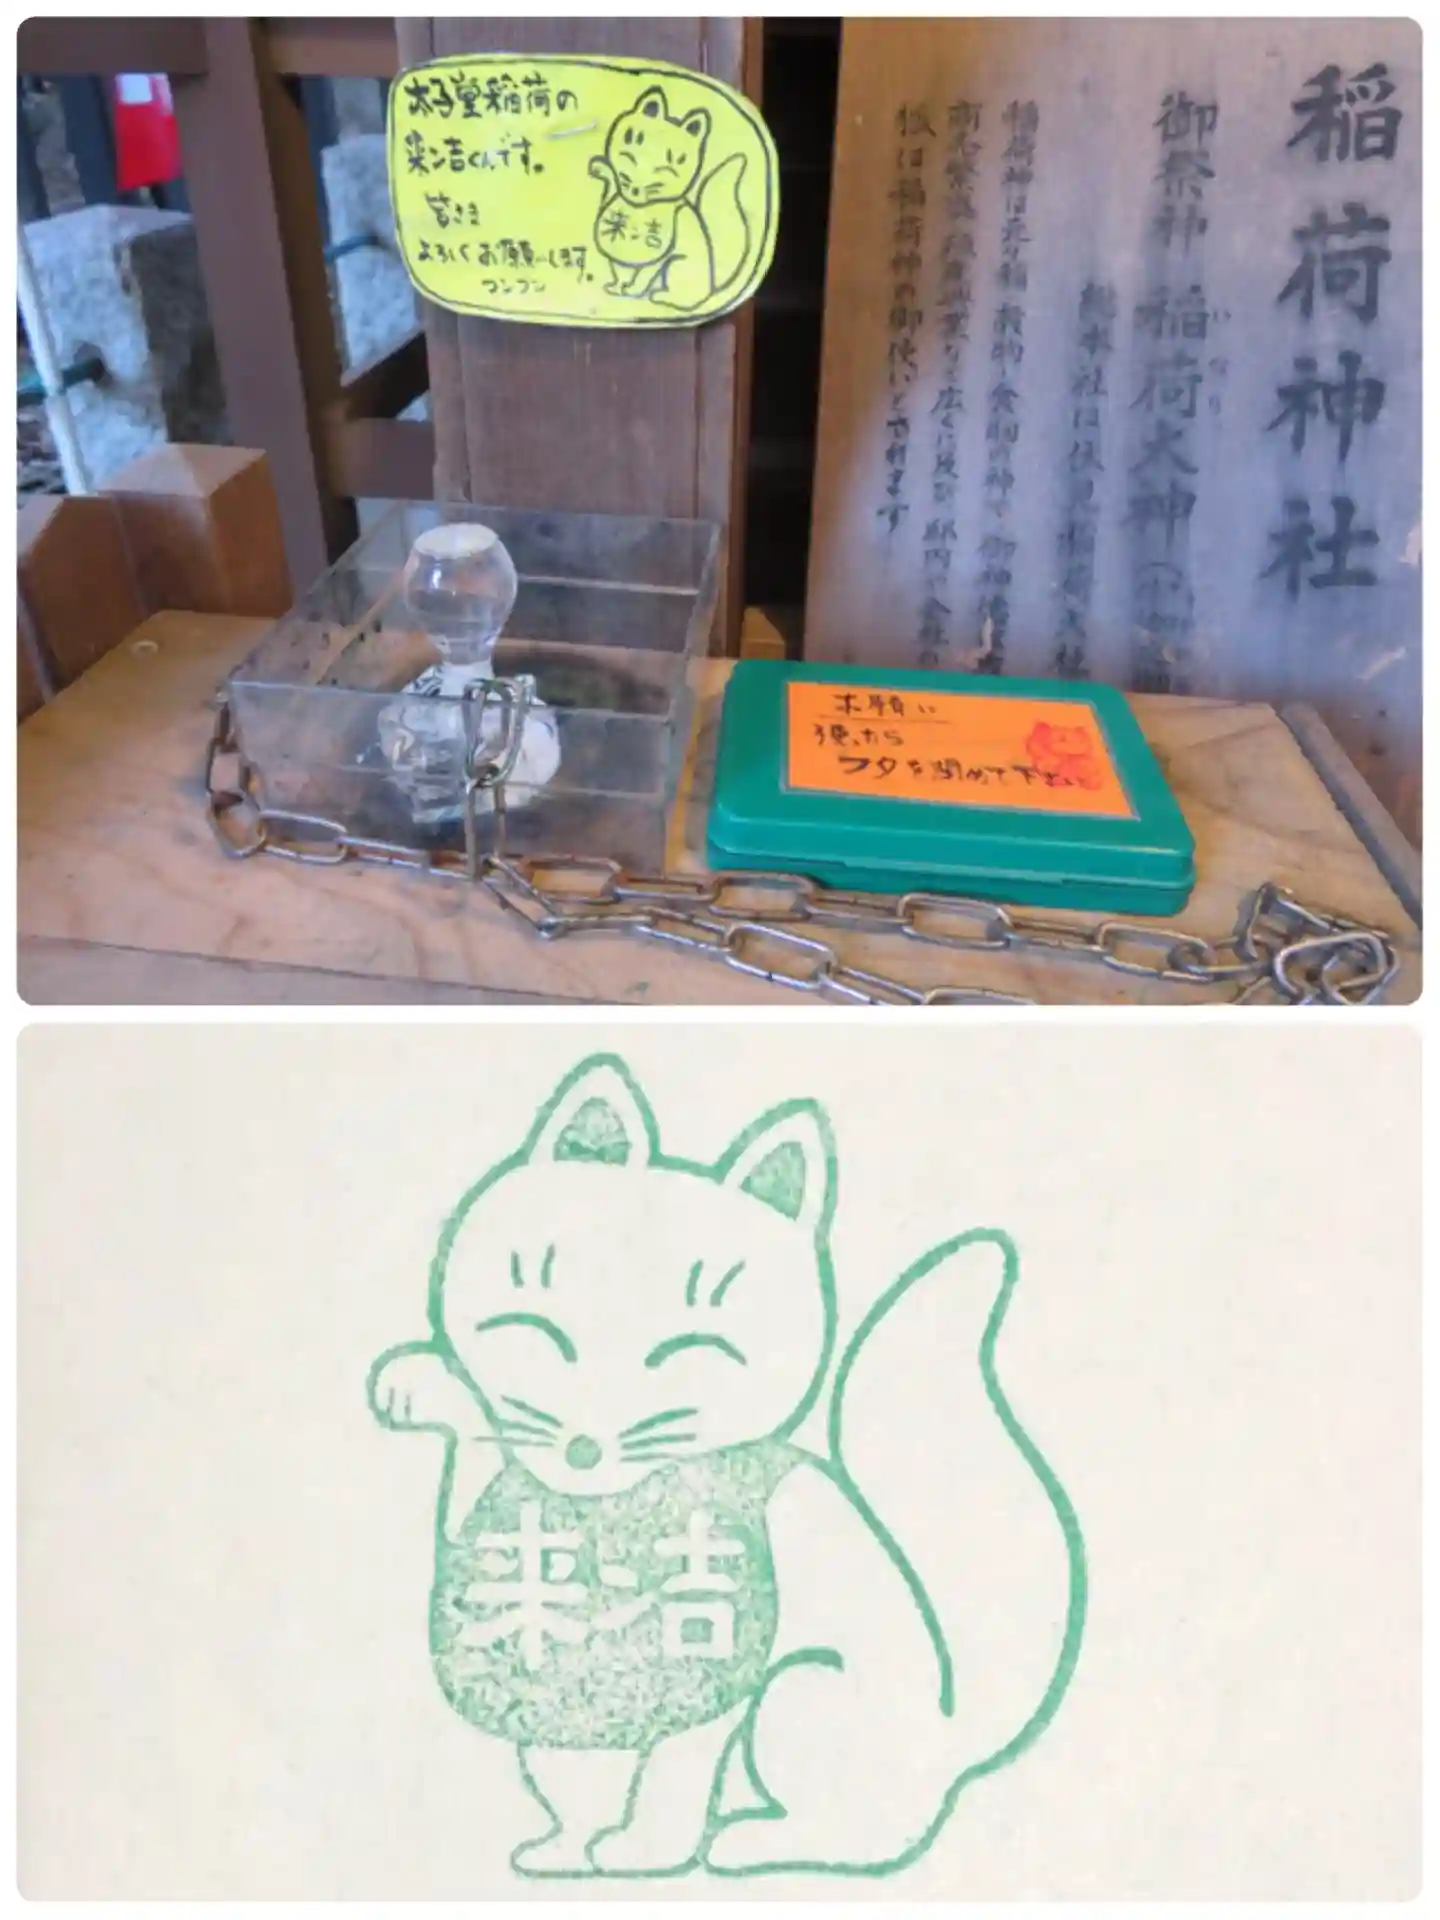 太子堂稲荷の
来ン吉くんです。
皆さま
よろしくお願いします。
コンコン
来ン吉
稲荷神社
御祭神 稲荷大神
いなり
総本社は伏見稲荷大社
稲荷神は元々稲 穀物や食物の神で 御神徳は
商売繁盛 殖産興業など広くに及び 邸内や会社の
狐は稲荷神の御使いとされます
お願い
使ったら
フタを閉めて下さい
来ン吉